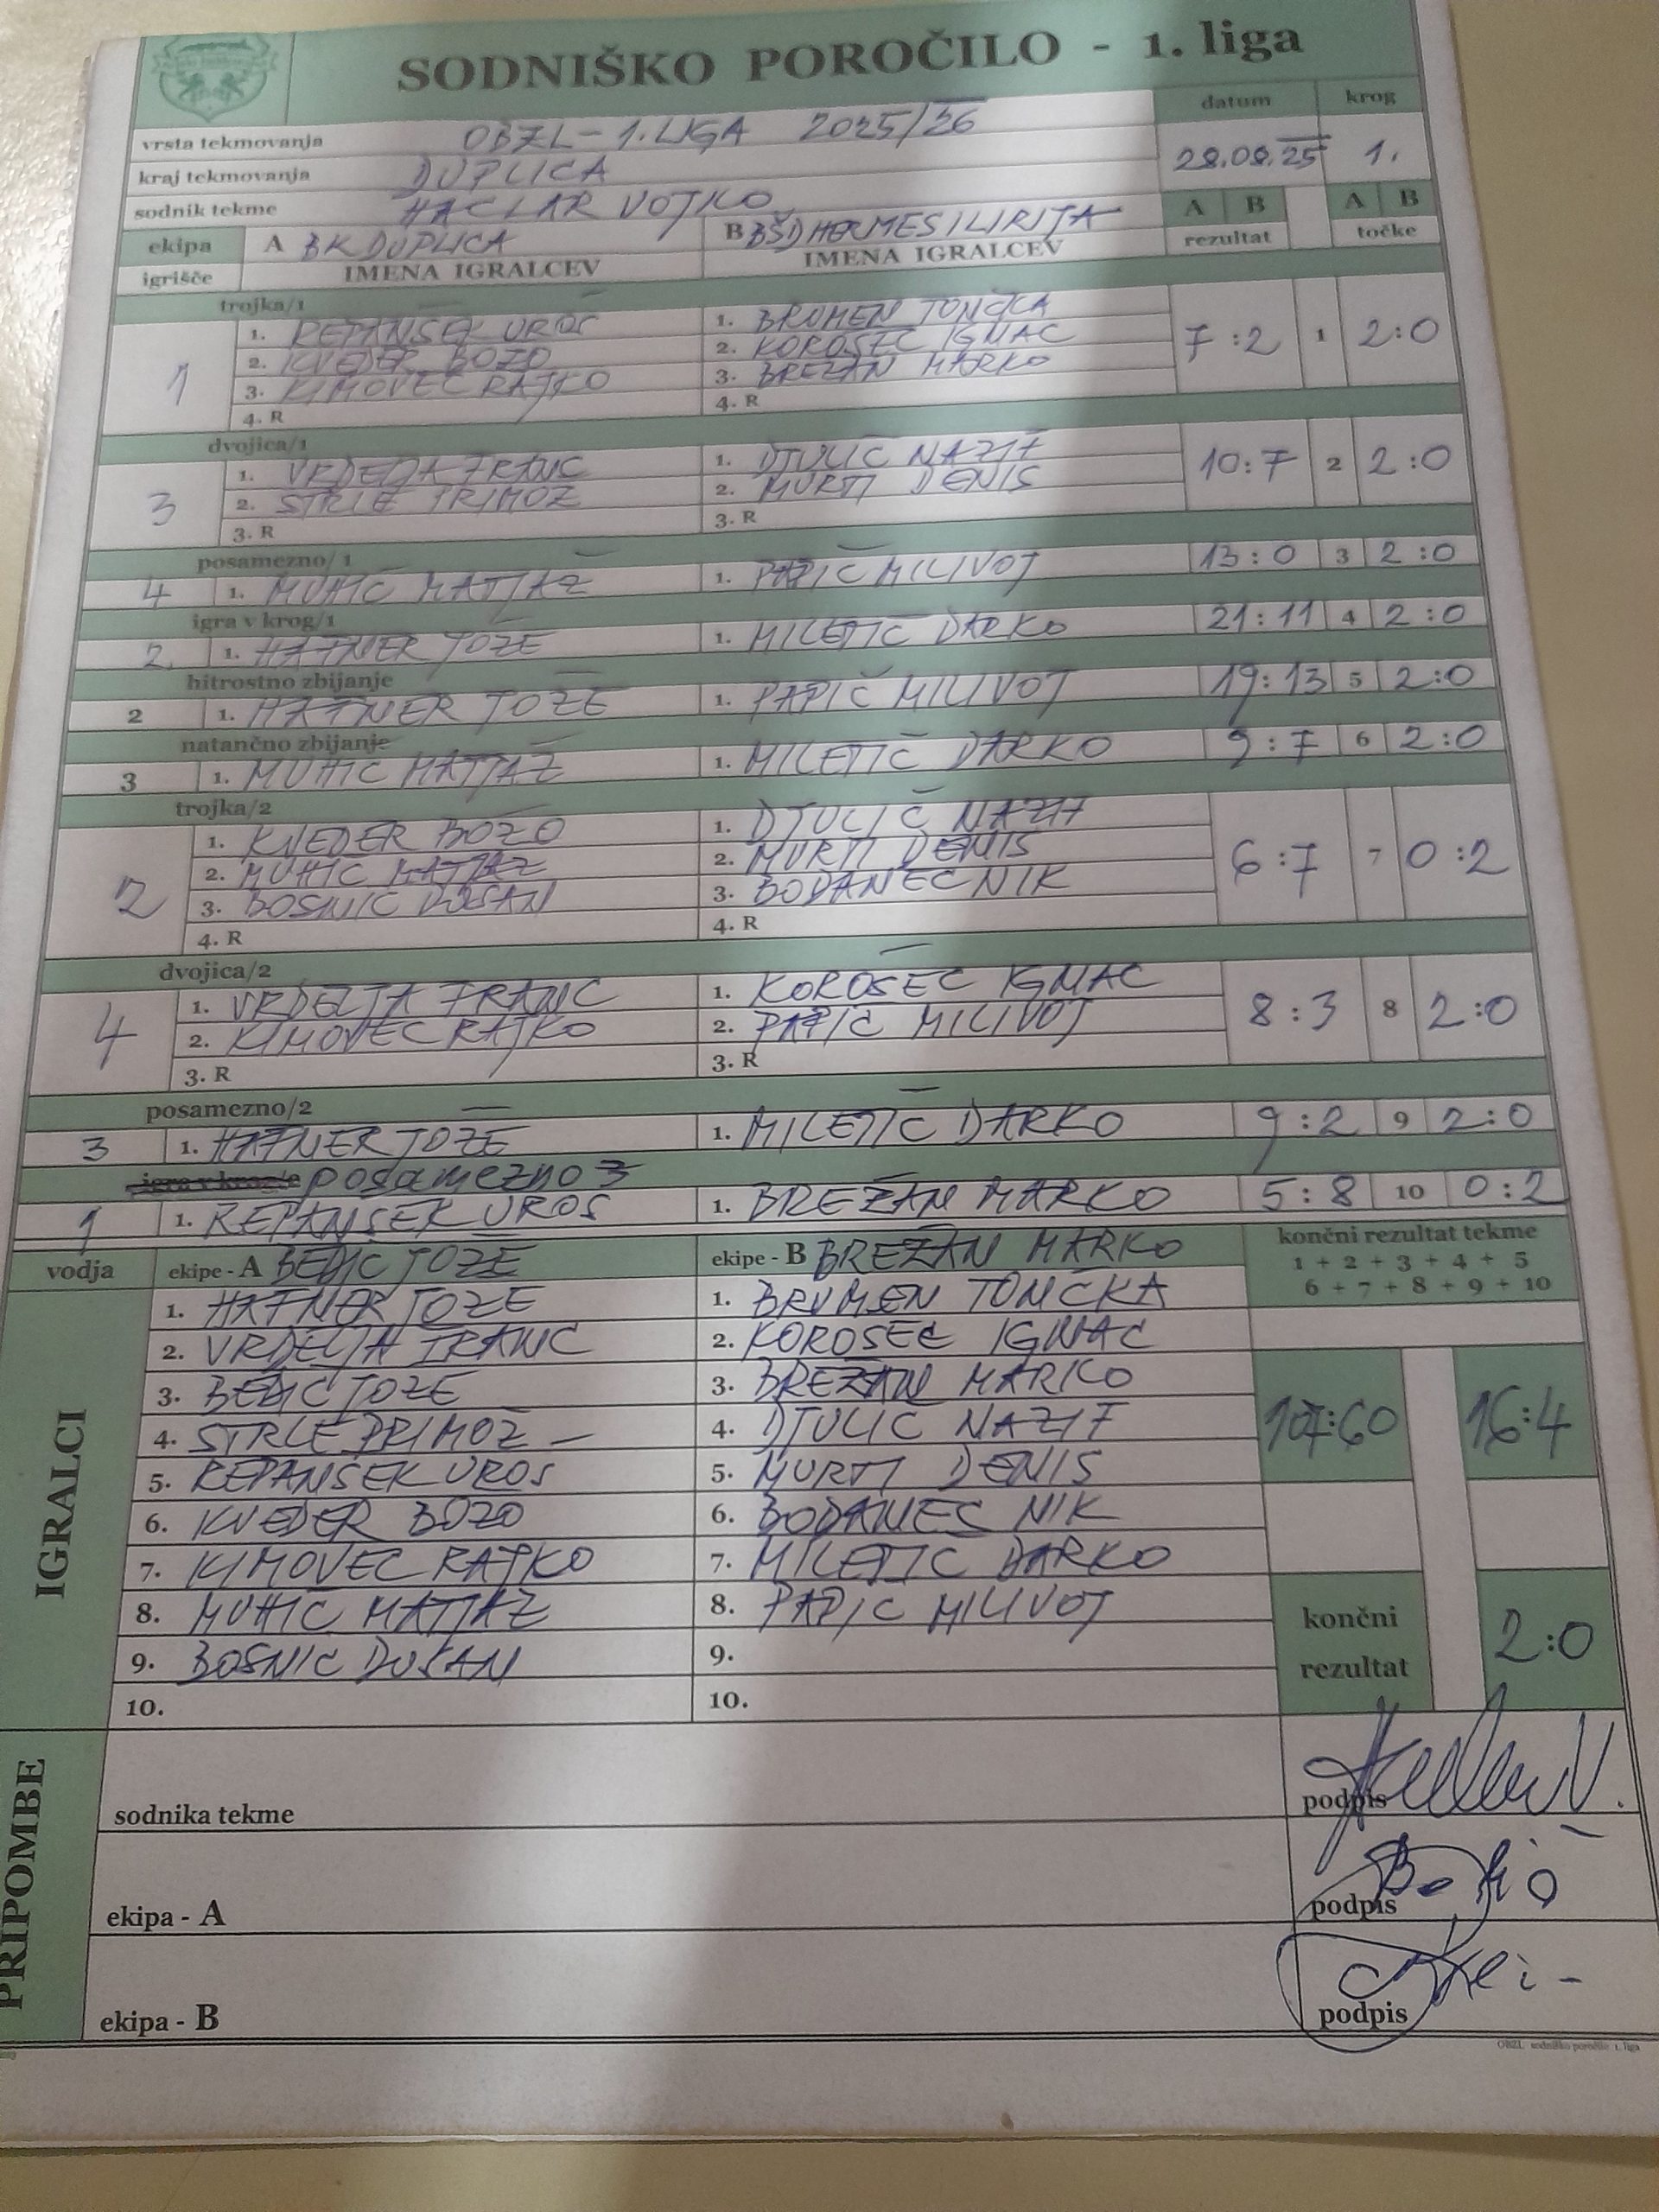 SODNIŠKO POROČILO - 1. liga
datum krog
vrsta tekmovanja OBZL - 1. LIGA 2025/26
28.08.25 1.
kraj tekmovanja DUPLICA
sodnik tekme VOJKO
A B A B
ekipa A BK DUPLICA B BŠD HERMES ILIRIJA
rezultat točke
igrišče IMENA IGRALCEV IMENA IGRALCEV
trojka/1
1. REPANŠEK UROŠ 1. BRUMEN TONČKA
2. KVEDER BOŽO 2. KOROŠEC IGNAC
1 3. KIMOVEC RAJKO 3. BREŽAN MARKO 7:2 1 2:0
4. R 4. R
dvojica/1
1. VRDELJA FRANC 1. DJULIČ NAZIF
3 2. STRLE PRIMOŽ 2. MURTI DENIS 10:7 2 2:0
3. R 3. R
posamezno/1
4 1. MUHIČ MATJAŽ 1. PAPIČ MILIVOJ 13:0 3 2:0
igra v krog/1
2. 1. HAFNER JOŽE 1. MILETIČ DARKO 21:11 4 2:0
hitrostno zbijanje
2 1. HAFNER JOŽE 1. PAPIČ MILIVOJ 19:13 5 2:0
natančno zbijanje
3 1. MUHIČ MATJAŽ 1. MILETIČ DARKO 9:7 6 2:0
trojka/2
1. KVEDER BOŽO 1. DJULIČ NAZIF
2. MUHIČ MATJAŽ 2. MURTI DENIS
2 3. BOSNIČ DUŠAN 3. BODANEC NIK 6:7 7 0:2
4. R 4. R
dvojica/2
1. VRDELJA FRANC 1. KOROŠEC IGNAC
4 2. KIMOVEC RAJKO 2. PAPIČ MILIVOJ 8:3 8 2:0
3. R 3. R
posamezno/2
3 1. HAFNER JOŽE 1. MILETIČ DARKO 9:2 9 2:0
igra v krog/2 posamezno 3
1 1. REPANŠEK UROŠ 1. BREŽAN MARKO 5:8 10 0:2
vodja ekipe - A BEDIČ JOŽE ekipe - B BREŽAN MARKO
končni rezultat tekme
1 + 2 + 3 + 4 + 5
6 + 7 + 8 + 9 + 10
IGRALCI
1. HAFNER JOŽE 1. BRUMEN TONČKA
2. VRDELJA FRANC 2. KOROSEC IGNAC
3. BEDIC JOŽE 3. BREŽAN MARKO
4. STRLE PRIMOŽ - 4. DJULIC NAZIF
107:60 16:4
5. REPANŠEK UROS 5. MURTI DENIS
6. KVEDER BOZO 6. BODANEC NIK
7. KIMOVEC RAJKO 7. MILETIC DARKO
8. MUHIC MATJAZ 8. PAPIC MILIVOJ
9. BOSNIC DUSAN 9.
10. 10.
končni
rezultat
2:0
PRIPOMBE
sodnika tekme podpis
ekipa - A podpis
ekipa - B podpis
OBZL sodniško poročilo 1. liga